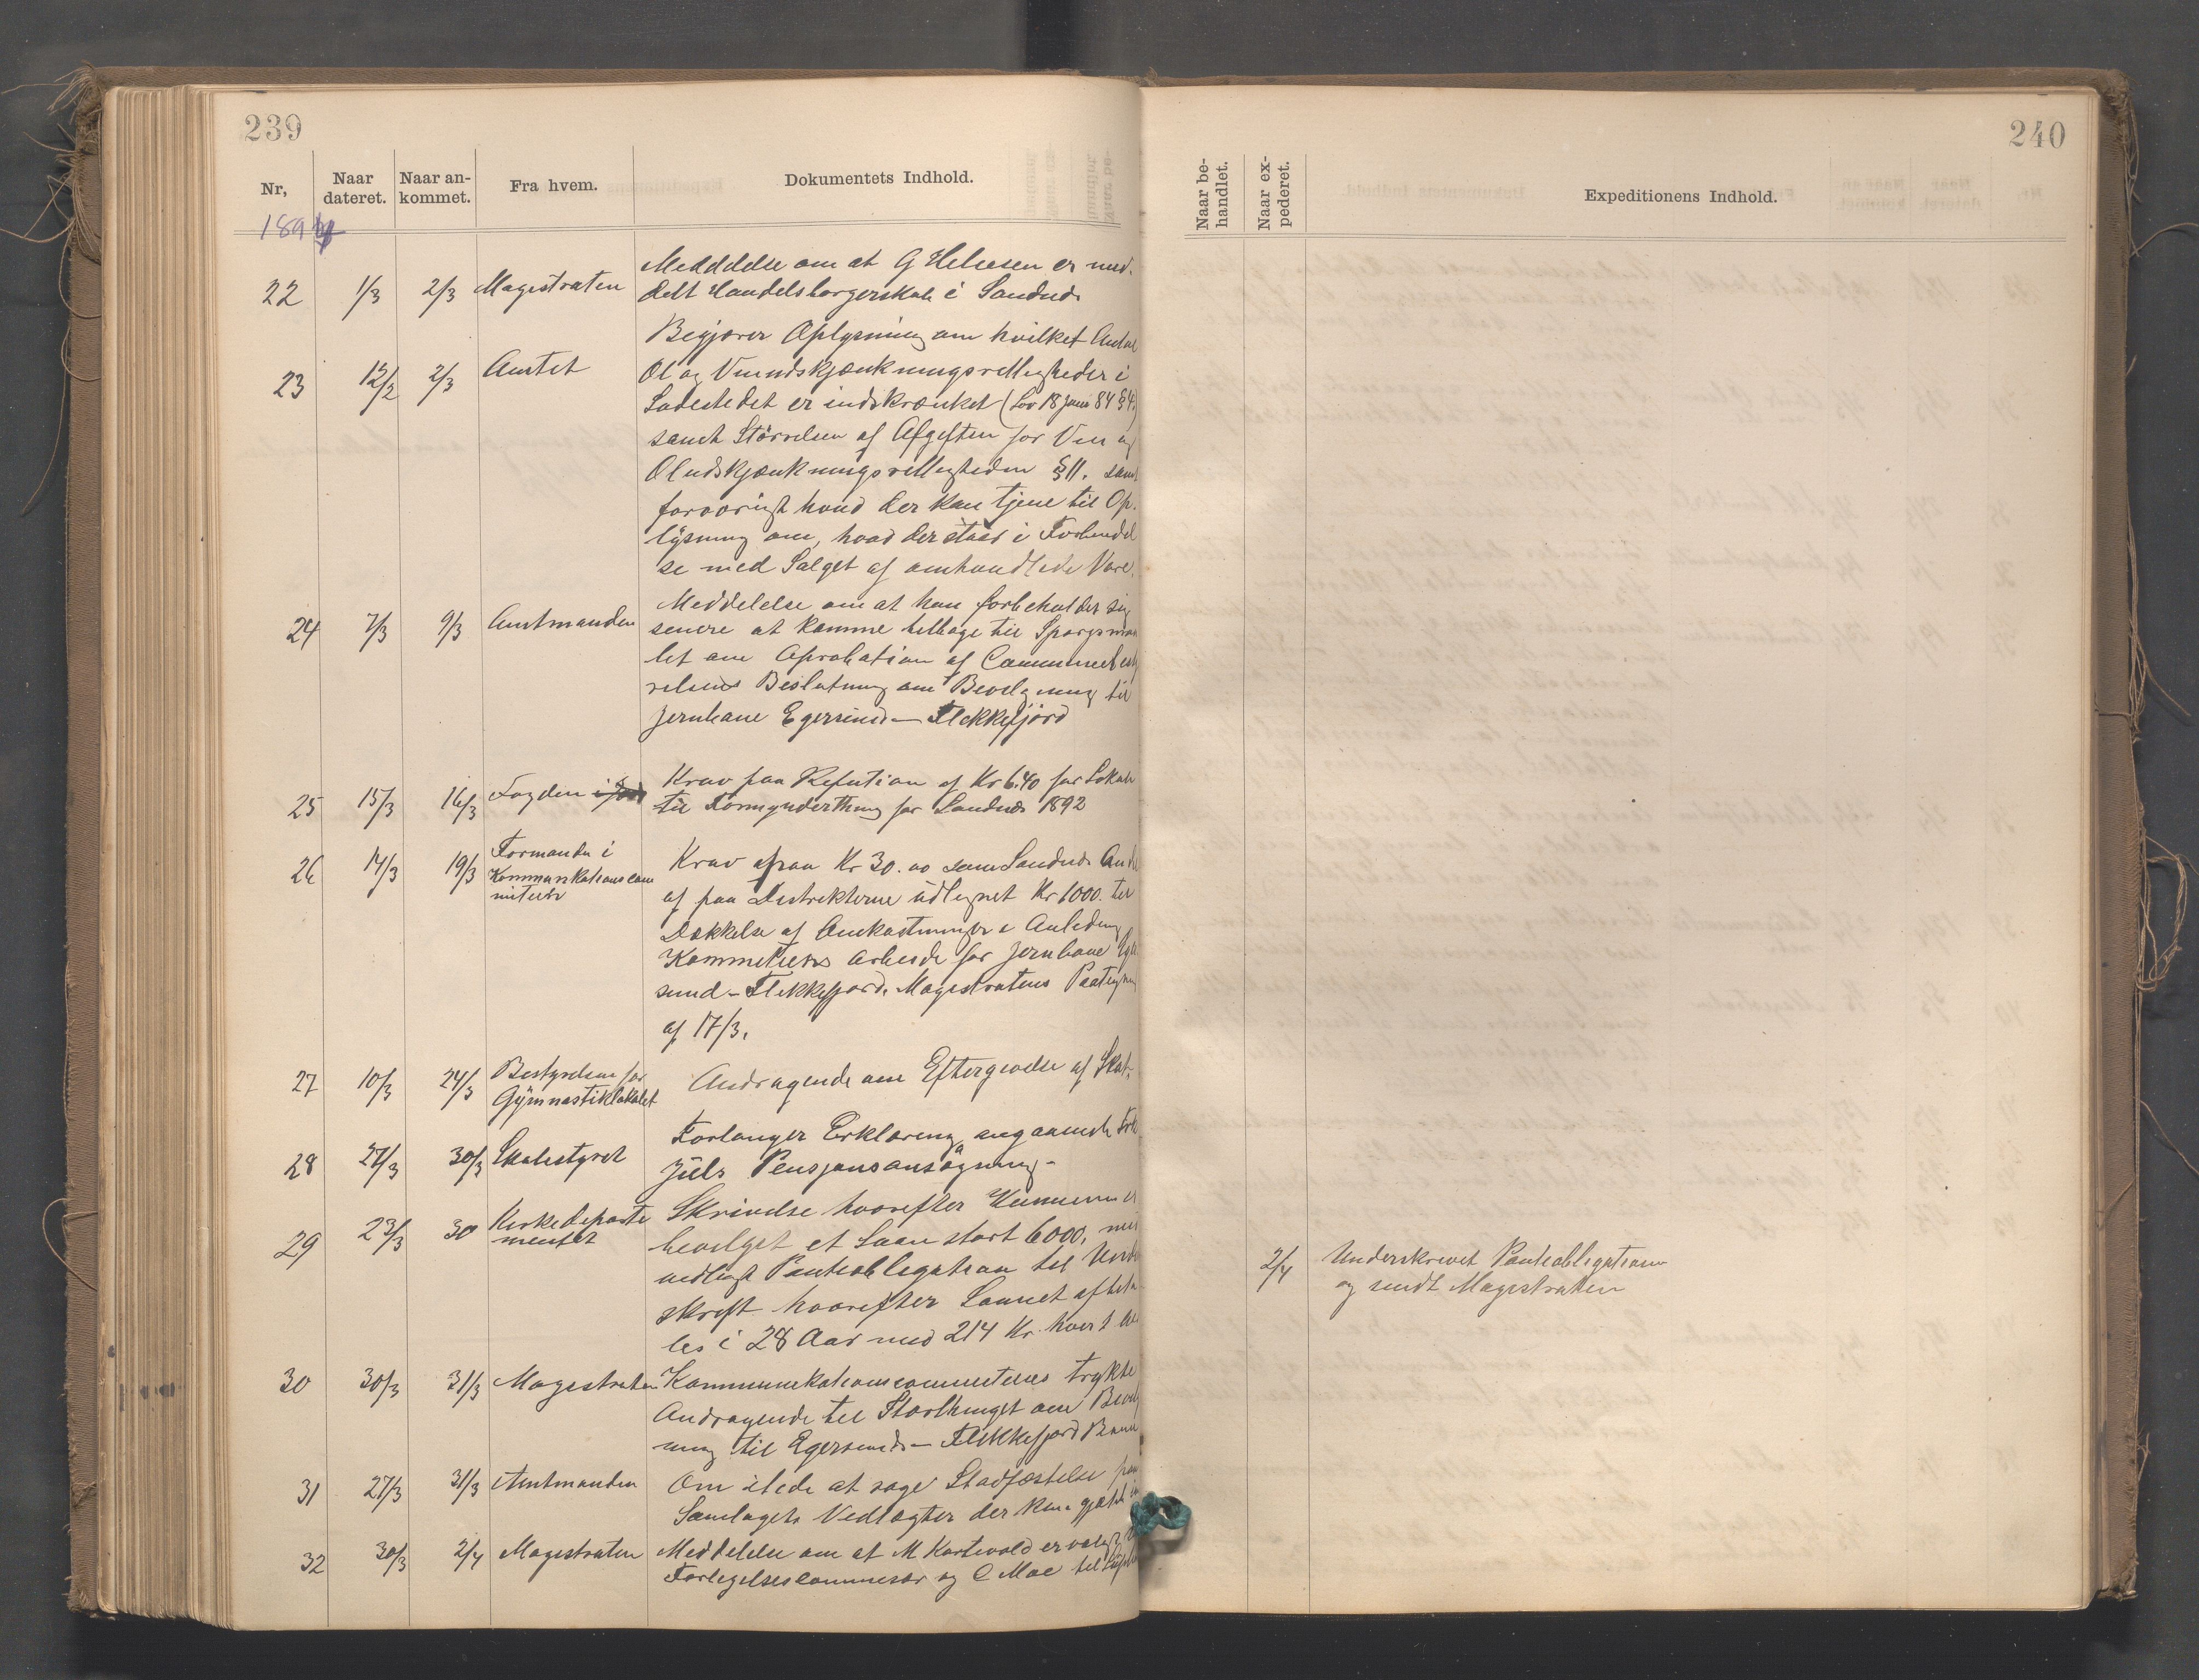 239
Nr, Naar dateret. Naar ankommet. Fra hvem. Dokumentets Indhold.
1894
22 1/3 2/3 Magistraten Meddelelse om at G Helliesen er med.
delt Handelsborgerskab i Sandnes
23 12/2 2/3 Amtet Begjærer Oplysning om hvilket Antal
Øl og Vinudskjænkningsrettigheder i
Ladestedet er indskrænket (Lov 18 Juni 84 § 4)
samt Størrelsen af Afgiften for Vin og
Øludskjænkningsrettigheden § 11. samt
forøvrigt hvad der kan tjene til Op.
lysning om, hvad der staar i Forbindel
se med Salget af omhandlede Vare.
24 7/3 9/3 Amtmanden Meddelelse om at han forbeholder sig
senere at komme tilbage til Spørgsmaa
let om Aprobation af Communebesty
relsens Beslutning om Bevilgning til
Jernbane Egersund – Flekkefjord
25 15/3 16/3 Fogden Krav paa Refution af Kr 6.40 for Lokale
til Formynderthing for Sandnes 1892
26 14/3 19/3 Formanden i
Kommunikationscom
miteen
Krav paa Kr 30.00 som Sandnes Andel
af paa Distrikterne udlignet Kr 1000. til
Dækkelse af Omkostninger i Anledning
Kommiteens Arbeide for Jernbane Eger
sund – Flekkefjord. Magistratens Paategning
af 17/3.
27 10/3 24/3 Bestyrelsen for
Gymnastiklokalet
Andragende om Eftergivelse af Skat.
28 27/3 30/3 Skolestyret Forlanger Erklæring angaaende Frk
Juels Pensjonsansøgning –
29 23/3 30 Kirkedeparte
mentet
Skrivelse hvorefter Kommunen er
bevilget et Laan stort 6000, med
vedlagt Panteobligation til Under
skrift hvorefter Laanet afbeta
les i 28 Aar med 214 Kr. hvert Aar
30 30/3 31/3 Magistraten Kommunikationscommiteens trykte
Andragende til Storthinget om Bevilg
ning til Egersunds – Flekkefjord Banen
31 27/3 31/3 Amtmanden Om istede at søge Stadfæstelse paa
Samlagets Vedtægter der kun gjældt
32 30/3 2/4 Magistraten Meddelelse om at M Kartevold er valgt
Forligelsescommissær og C Moe til Suppl
240
Naar behandlet. Naar expederet. Expeditionens Indhold.
2/4 Underskrevet Panteobligationen
og sendt Magistraten